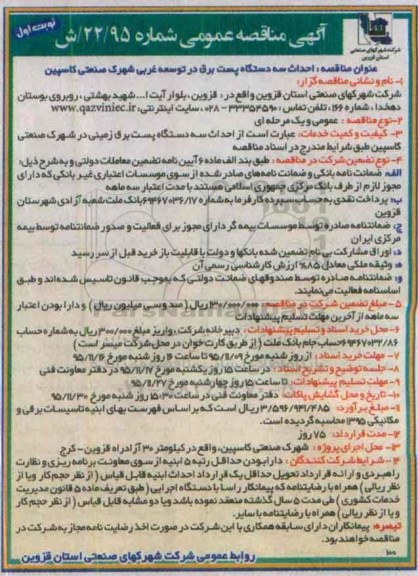 نوبت اول
آگهی مناقصه عمومی شماره ۲۲/۹۵/ش
شرکت شهرکهای صنعتی
استان قزوین
عنوان مناقصه : احداث سه دستگاه پست برق در توسعه غربی شهرک صنعتی کاسپین
۱- نام و نشانی مناقصه گزار:
شرکت شهرکهای صنعتی استان قزوین واقع در : قزوین ، بلوار آیت ا... شهید بهشتی ، روبروی بوستان
دهخدا ، شماره ۱۶۶ ، تلفن تماس : ۳۳۳۵۴۵۹۰-۰۲۸ ، سایت اینترنتی: www.qazviniec.ir
۲-نوع مناقصه : عمومی و یک مرحله ای
۳- کیفیت و کمیت خدمات: عبارت است از احداث سه دستگاه پست برق زمینی در شهرک صنعتی
کاسپین طبق شرایط مندرج در اسناد مناقصه
۴- نوع تضمین شرکت در مناقصه : طبق بند الف ماده ۶ آیین نامه تضمین معاملات دولتی و به شرح ذیل:
الف: ضمانت نامه بانکی و ضمانت نامه های صادر شده از سوی موسسات اعتباری غیر بانکی که دارای
مجوز لازم از طرف بانک مرکزی جمهوری اسلامی هستند با مدت اعتبار سه ماهه
ب: پرداخت نقدی به حساب سپرده کارفرما به شماره ۶۹۴۶۷۰۳۶/۱۷ بانک ملت شعبه آزادی شهرستان
قزوین
ج: ضمانتنامه صادره توسط موسسات بیمه گر دارای مجوز برای فعالیت و صدور ضمانتنامه توسط بیمه
مرکزی ایران
د: اوراق مشارکت بی نام تضمین شده بانکها و دولت با قابلیت باز خرید قبل از سر رسید
ه: وثیقه ملکی معادل ۸۵% ارزش کارشناسی رسمی آن
و: ضمانتنامه صادره توسط صندوقهای ضمانت دولتی که بموجب قانون تاسیس شده اند و طبق
اساسنامه فعالیت می نمایند.
۵- مبلغ تضمین شرکت در مناقصه: ۱۳۰/۰۰۰/۰۰۰ ریال ( صد و سی میلیون ریال ) و دارا بودن اعتبار
سه ماهه از آخرین مهلت تسلیم پیشنهادات
۶- محل خرید اسناد و تسلیم پیشنهادات : دبیرخانه شرکت ، واریز مبلغ ۳۰۰/۰۰۰ ریال به شماره حساب
۶۹۴۶۷۰۳۲/۸۶ حساب جام بانک ملت ( از طریق کارت خوان در محل شرکت میسر است )
۷- مهلت خرید اسناد : از روز شنبه مورخ ۹۵/۱۱/۰۹ تا ساعت ۱۶ روز شنبه مورخ ۹۵/۱۱/۱۶
۸- جلسه توضیح و تشریح اسناد: در ساعت ۱۵ روز یکشنبه مورخ ۹۵/۱۱/۱۷ در دفتر معاونت فنی
۹- مهلت تسلیم پیشنهادات: تا ساعت ۱۵ روز چهارشنبه مورخ ۹۵/۱۱/۲۷
۱۰- تاریخ و محل گشایش پاکات: دفتر معاونت فنی در ساعت ۱۵:۳۰ روز شنبه مورخ ۹۵/۱۱/۳۰
۱۱- مبلغ برآورد: ۳/۵۹۶/۹۴۱/۴۸۵ ریال است که بر اساس فهرست بهای ابنیه تاسیسات برقی و
مکانیکی ۱۳۹۵ محاسبه گردیده است.
۱۲- مدت قرارداد: ۷۵ روز
۱۳- محل اجرای پروژه : شهرک صنعتی کاسپین، واقع در کیلومتر ۳۰ آزادراه قزوین - کرج
۱۴- شرایط شرکت کنندگان : دارا بودن حداقل رتبه ۵ ابنیه از سوی معاونت برنامه ریزی و نظارت
راهبردی و ارائه قرارداد تحویل حداقل یک قرارداد احداث ابنیه قابل قیاس ( از نظر حجم کار و یا از
نظر ریالی ) همراه با رضایتنامه که پیمانکار راسا با دستگاه اجرایی ( طبق تعریف ماده ۵ قانون مدیریت
خدمات کشوری ) طی مدت ۵ سال گذشته منعقد نموده باشد و یا دو مشابه قابل قیاس ( از نظر حجم کار
و یا از نظر ریالی ) همراه با رضایتنامه با سایر.
تبصره: پیمانکاران دارای سابقه همکاری با این شرکت در صورت اخذ رضایت نامه مجاز به شرکت در
مناقصه خواهند بود.
روابط عمومی شرکت شهرکهای صنعتی استان قزوین